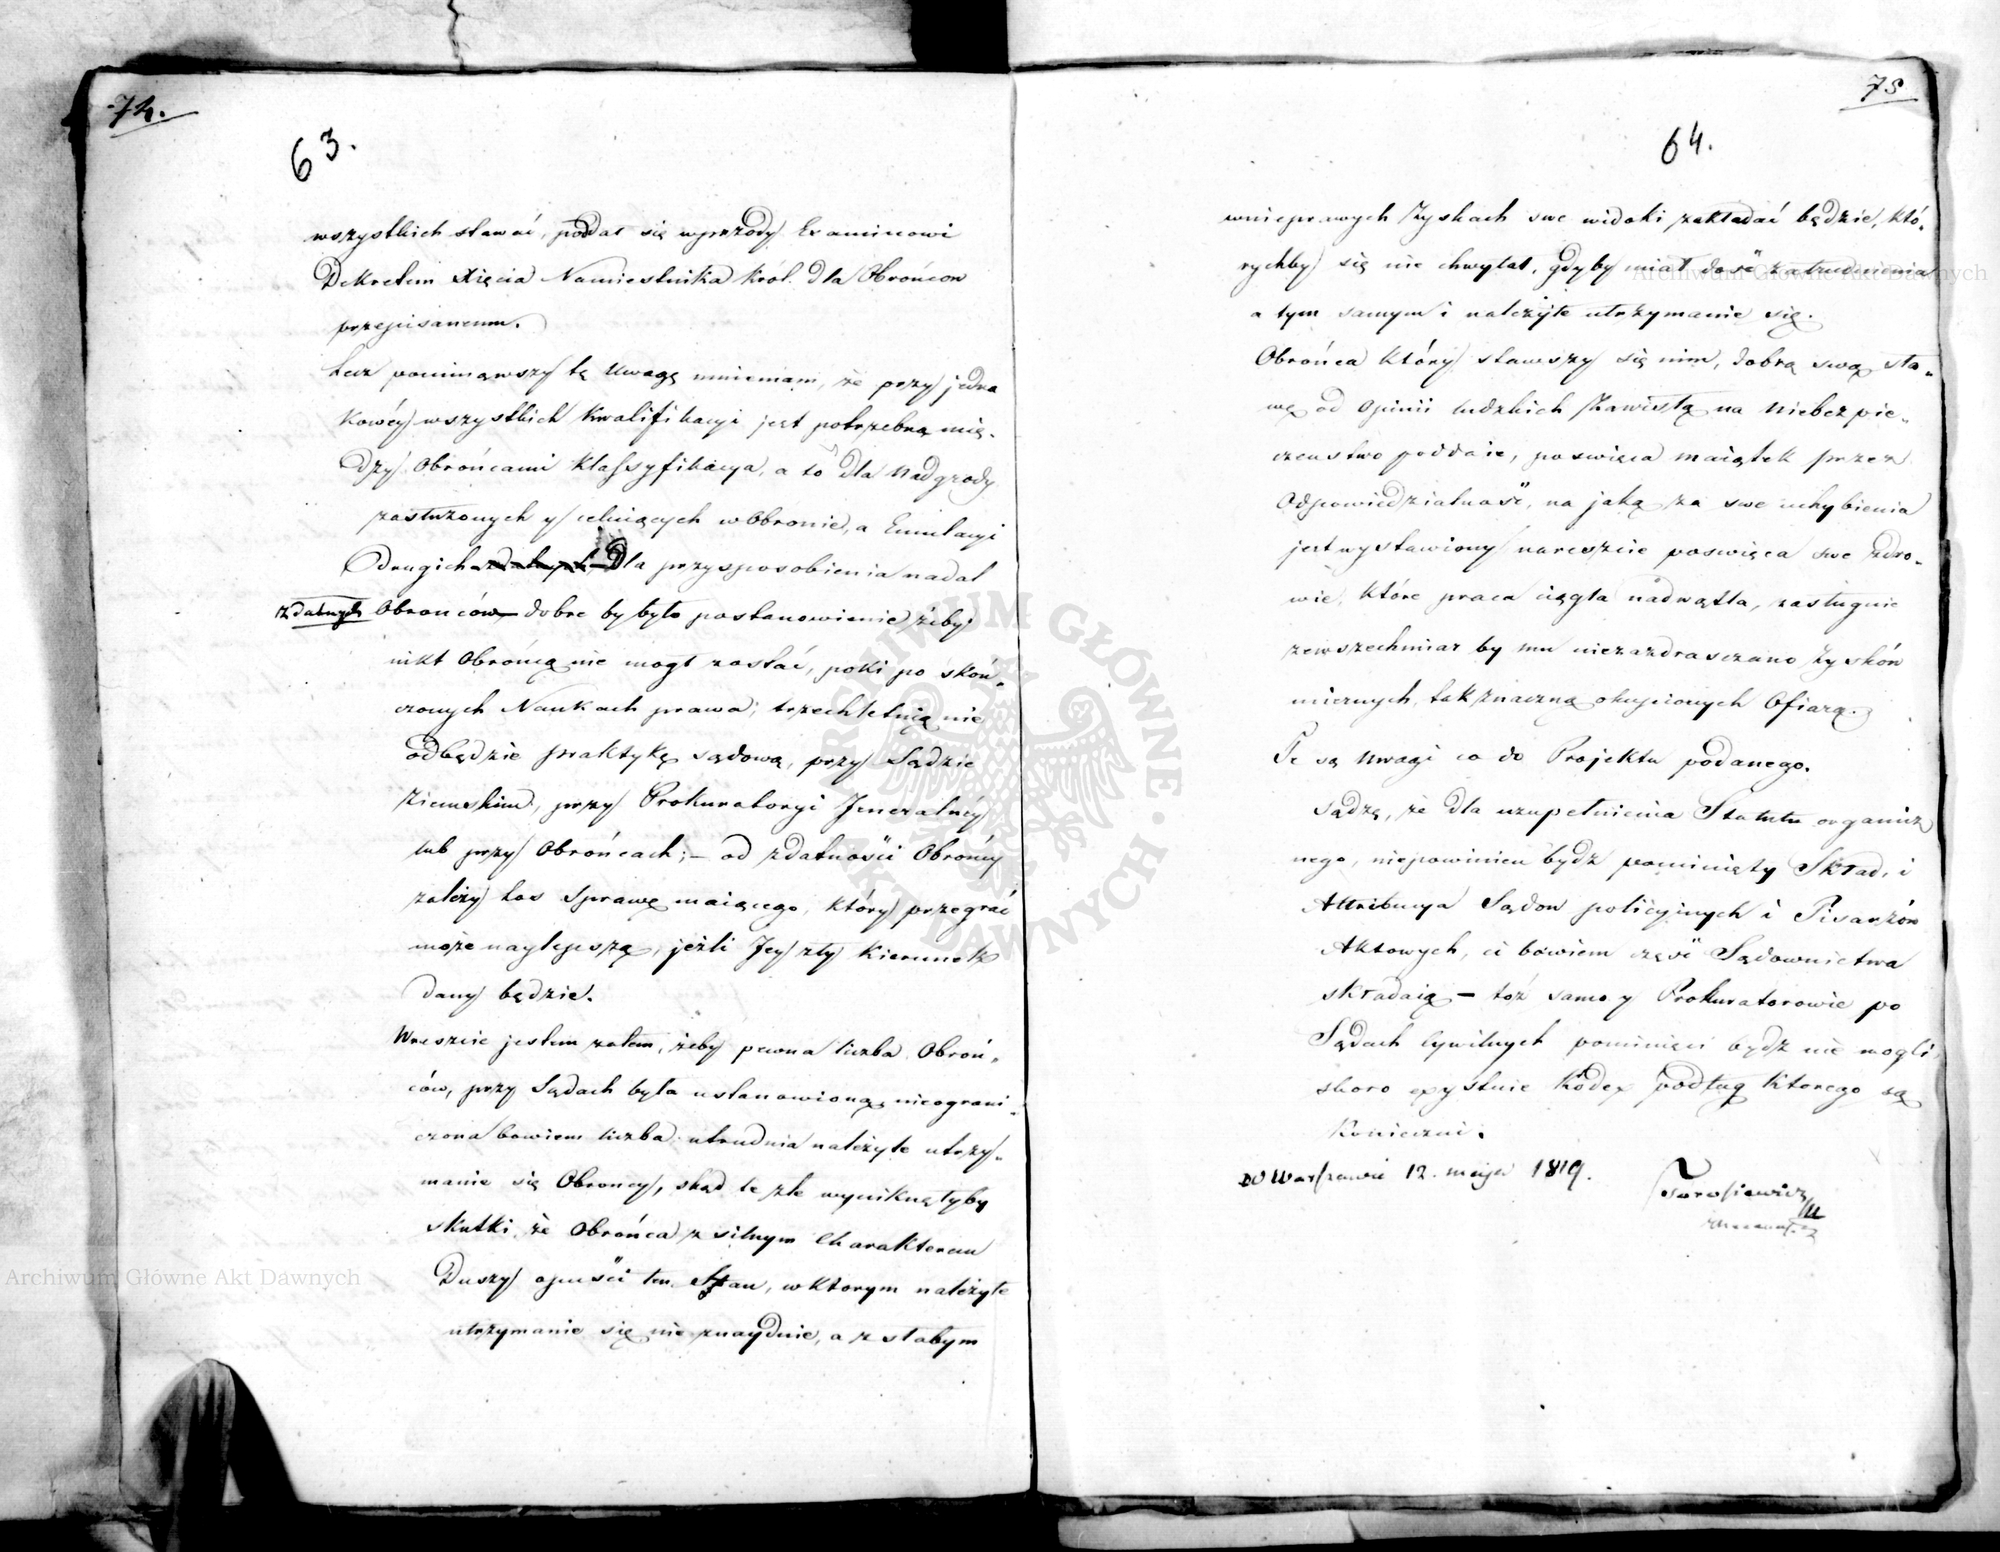 74.
63.
wszystkich stawać, poddał się wprzódy Examinowi
Dekretem Xięcia Namiestnika Król. dla Obrońcow
przepisanemu.
Lecz pominąwszy tę Uwagę mniemam, że przy jedna
kowéy wszystkich kwalifikacyi jest potrzebną mię-
dzy Obrońcami klassyfikacya, a to dla Nadgrody
zasłużonych y celuiących w Obronie, a Emulacyi
drugich zdatnych dla przysposobienia nadal
zdatnych Obrońców – dobre by było postanowienie żeby
nikt Obrońcą nie mogł zostać, poki po skoń-
czonych Naukach prawa, trzechletnią nie
odbędzie praktykę sądową, przy Sądzie
Ziemskim, przy Prokuratoryi Jeneralnéy
lub przy Obrońcach; – od zdatności Obrońcy
zależy los Sprawę maiącego, który przegrać
może naylepszą, jeżli Jey zły kierunek
dany będzie.
Wreszcie jestem zatem, żeby pewna liczba Obroń-
ców, przy Sądach była ustanowioną, nieograni-
czona bowiem liczba utrudnia należyte utrzy-
manie się Obrońcy, skąd te złe wyniknęłyby
skutki, że Obrońca z silnym Charakterem
Duszy opuści ten Stan, w którym należyte
utrzymanie się nie znayduie, a z słabym
75
64.
w nieprawych Zyskach swe widoki zakładać będzie, któ-
rychby się nie chwytał, gdyby miał dość zatrudnienia
a tym samym i należyte utrzymanie się.
Obrońca który stawszy się nim, dobrą swą sła-
wę od opinii ludzkich zawisłą na Niebezpie-
czeństwo poddaie, poswięca maiątek przez
Odpowiedzialność, na jaką za swe uchybienia
jest wystawiony nareszcie poswięca swe zdro-
wie, które praca ciągła nadwątla, zasługuie
zewszechmiar by mu niezazdrasczano Zysków
miernych, tak znaczną okupionych Ofiarą.
Te są Uwagi co do Projektu podanego.
Sądzę, że dla uzupełnienia Statutu organicz
nego, niepowinien bydź pominięty Skład, i
Attribucya Sądow policyjnych i Pisarzów
Aktowych, ci bowiem część Sądownictwa
składaią – toż samo y Prokuratorowie po
Sądach Cywilnych pominięci bydź nie mogli,
skoro exystuie Kodex podług którego są
konieczni.
w Warszawie 12. maja 1819.
Torosiewicz
Archiwum Główne Akt Dawnych
Archiwum Główne Akt Dawnych
ARCHIWUM GŁÓWNE · AKT DAWNYCH ·